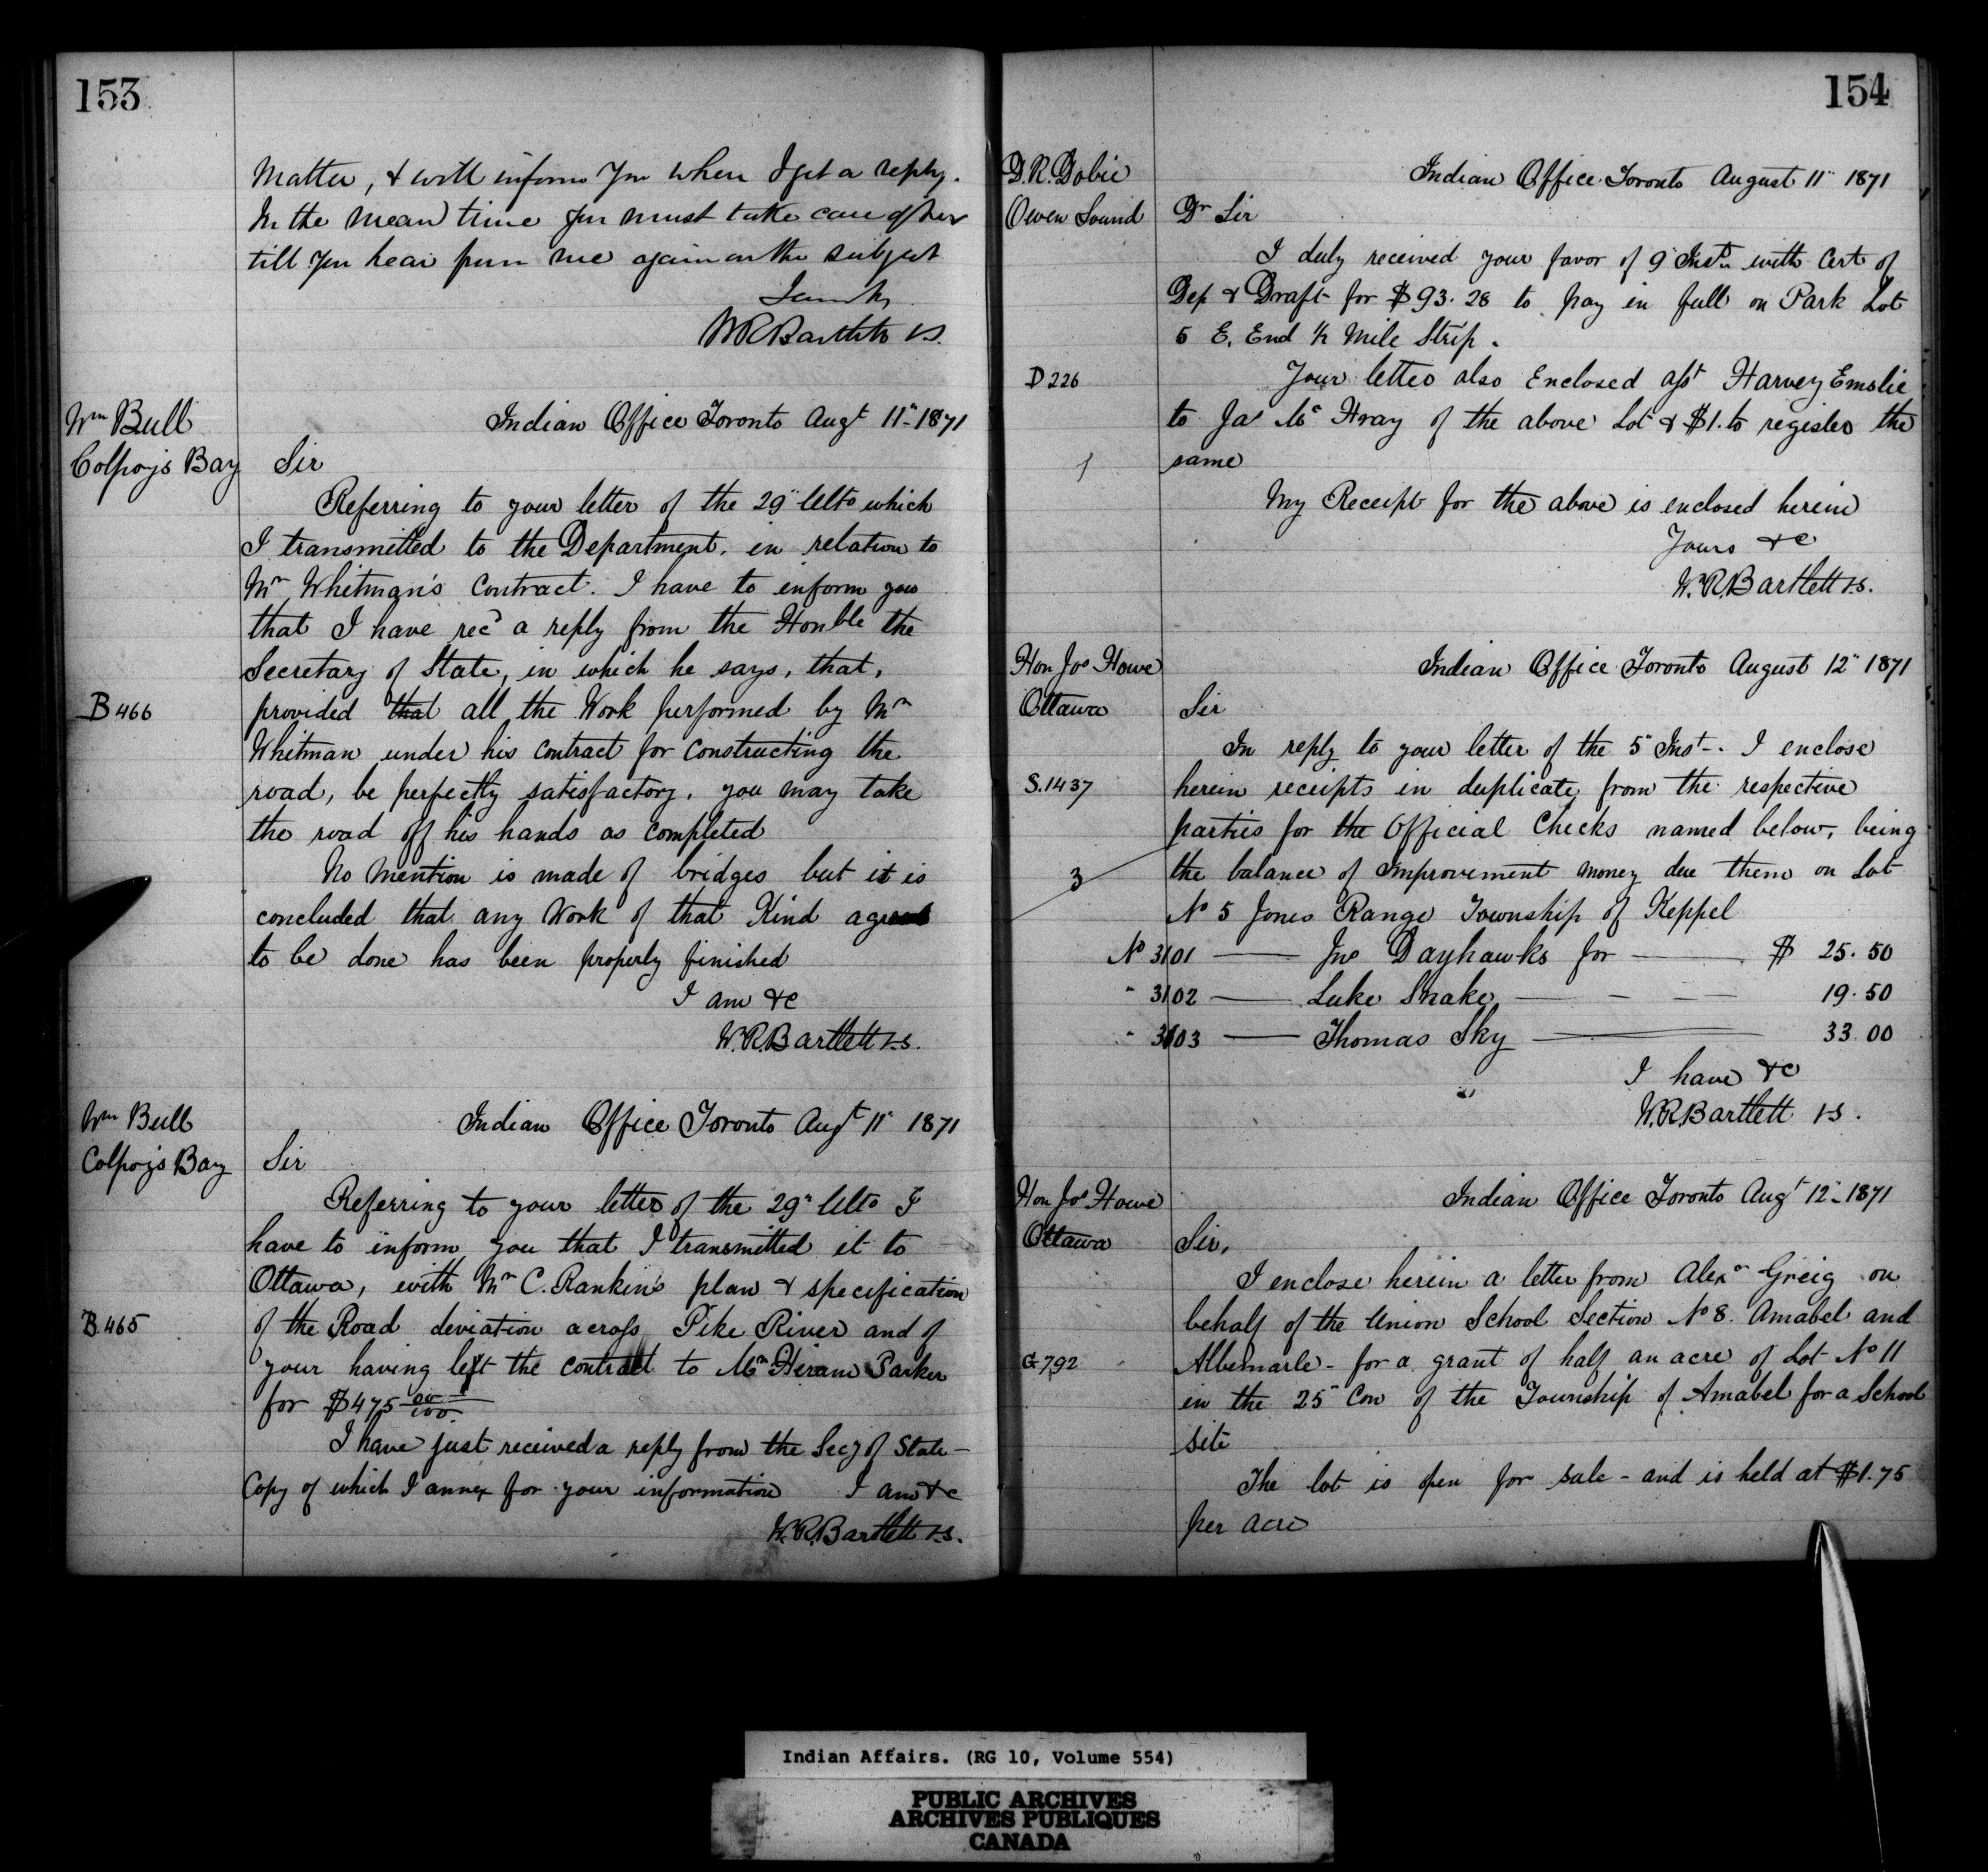 153
Matter, & will inform you when I get a reply.
In the mean time you must take care of her
till you hear from me again on the subject
I am &c
W R Bartlett V.S.
Wm Bull
Colpoys Bay
Indian Office Toronto Augt 11" 1871
Sir
Referring to your letter of the 29" Ulto which
I transmitted to the Department, in relation to
Mr Whitman's Contract. I have to inform you
that I have recd a reply from the Honble the
Secretary of State, in which he says, that,
B 466
provided that all the Work performed by Mr
Whitman under his contract for constructing the
road, be perfectly satisfactory, you may take
the road off his hands as completed
No mention is made of bridges but it is
concluded that any Work of that Kind agreed
to be done has been properly finished
I am &c
W.R.Bartlett V.S.
Wm Bull
Colpoys Bay
Indian Office Toronto Augt 11" 1871
Sir
Referring to your letter of the 29" Ulto I
have to inform you that I transmitted it to
Ottawa, with Mr C. Rankin's plan & specification
B 465
of the Road deviation across Pike River and of
your having left the contract to Mr Hiram Parker
for $475 00/100.
I have just received a reply from the Secy of State –
Copy of which I annex for your information I am &c
W.R.Bartlett V.S.
154
D.R. Dobie
Owen Sound
Indian Office Toronto August 11" 1871
Dr Sir
I duly received your favor of 9" Inst. with Cert of
Dep & Draft for $93.28 to pay in full on Park Lot
5 E. End ½ Mile Strip.
D 226
Your letter also Enclosed asst Harvey Emslie
to Jas Mc Hray of the above Lot & $1. to register the
1
same
My Receipt for the above is enclosed herein
Yours &c
W.R.Bartlett V.S.
Hon Jos Howe
Ottawa
Indian Office Toronto August 12" 1871
Sir
In reply to your letter of the 5" Inst –. I enclose
S.1437
herein receipts in duplicate from the respective
parties for the Official Checks named below, being
3
the balance of Improvement money due them on Lot
No 5 Jones Range Township of Keppel
No 3101 — Jno Dayhawks for — $ 25.50
" 3102 — Luke Snake — 19.50
" 3103 — Thomas Sky — 33.00
I have &c
W.R.Bartlett V.S.
Hon Jos Howe
Ottawa
Indian Office Toronto Augt 12" 1871
Sir,
I enclose herein a letter from Alexr Greig on
behalf of the Union School Section No 8. Amabel and
G 792
Albemarle – for a grant of half an acre of Lot No 11
in the 25" Con of the Township of Amabel for a School
site
The lot is open for sale – and is held at $1.75
per acre
Indian Affairs. (RG 10, Volume 554)
PUBLIC ARCHIVES
ARCHIVES PUBLIQUES
CANADA